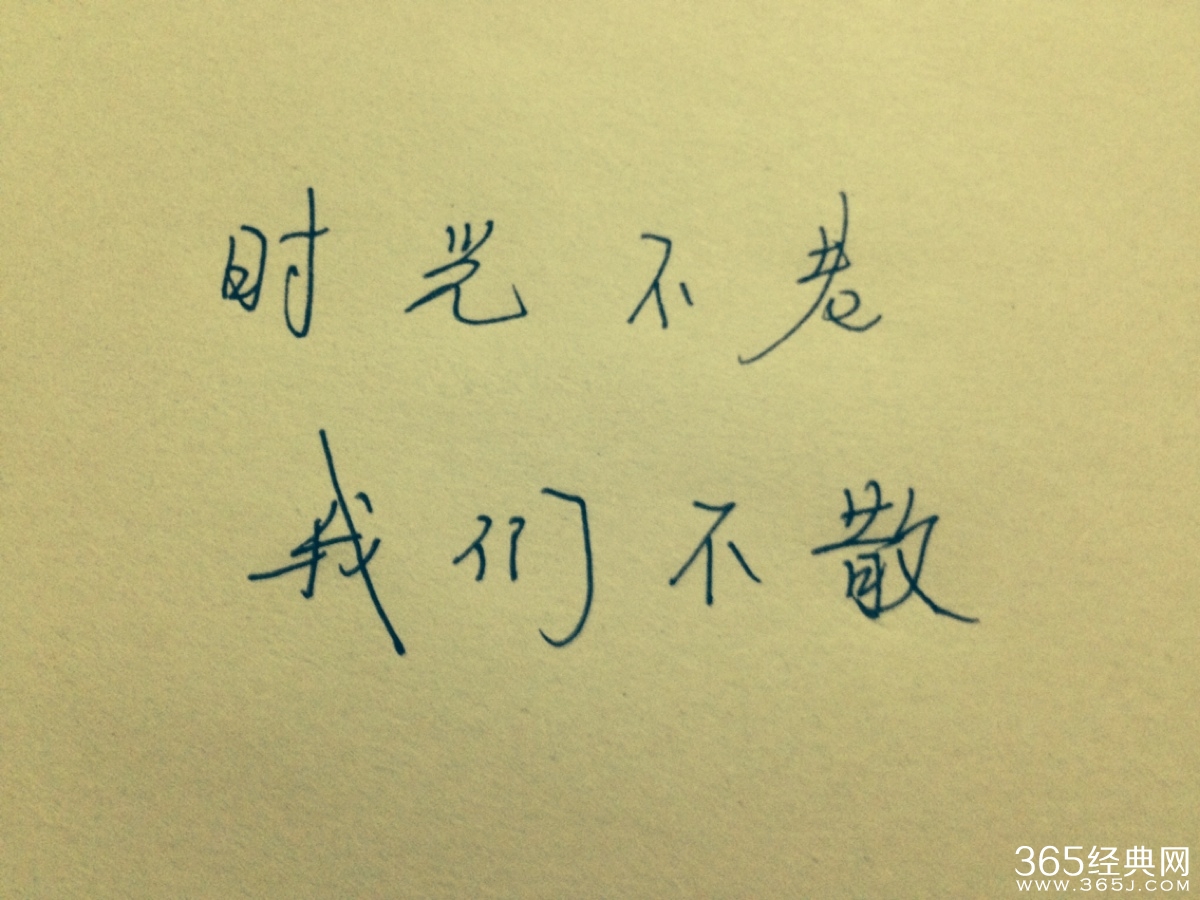 时光不老
我们不散
365经典网
WWW.365J.COM